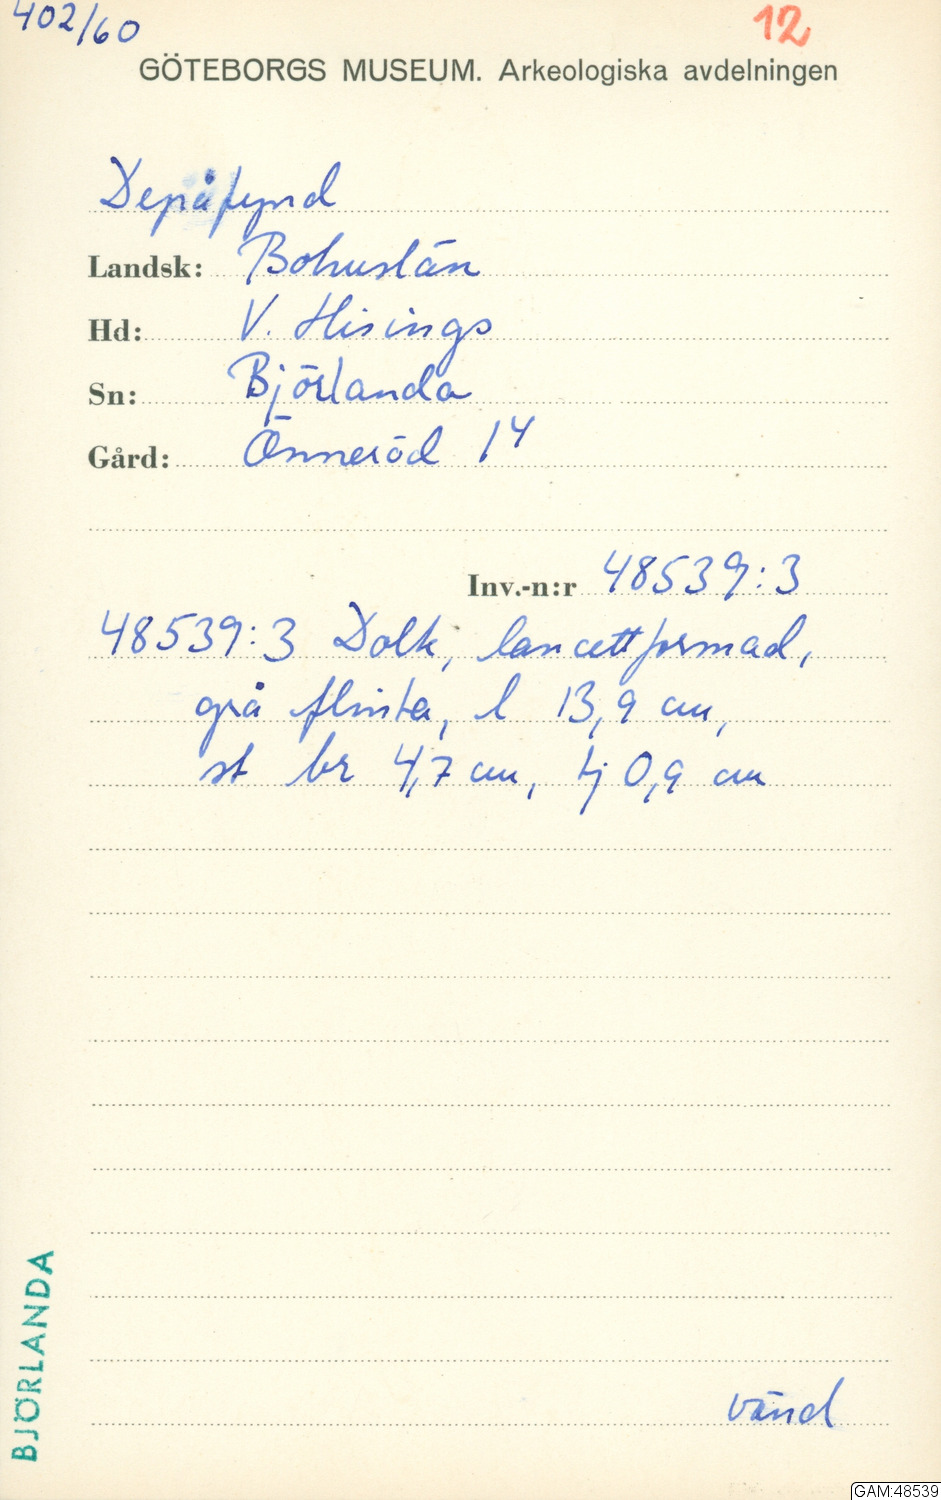 402/60
12
GÖTEBORGS MUSEUM. Arkeologiska avdelningen
Depåfynd
Landsk: Bohuslän
Hd: V. Hisings
Sn: Björlanda
Gård: Önneröd 14
Inv.-n:r 48539:3
48539:3 Dolk, lancettformad,
grå flinta, l 13,9 cm,
st br 4,7 cm, tj 0,9 cm
BJÖRLANDA
vänd
GAM:48539